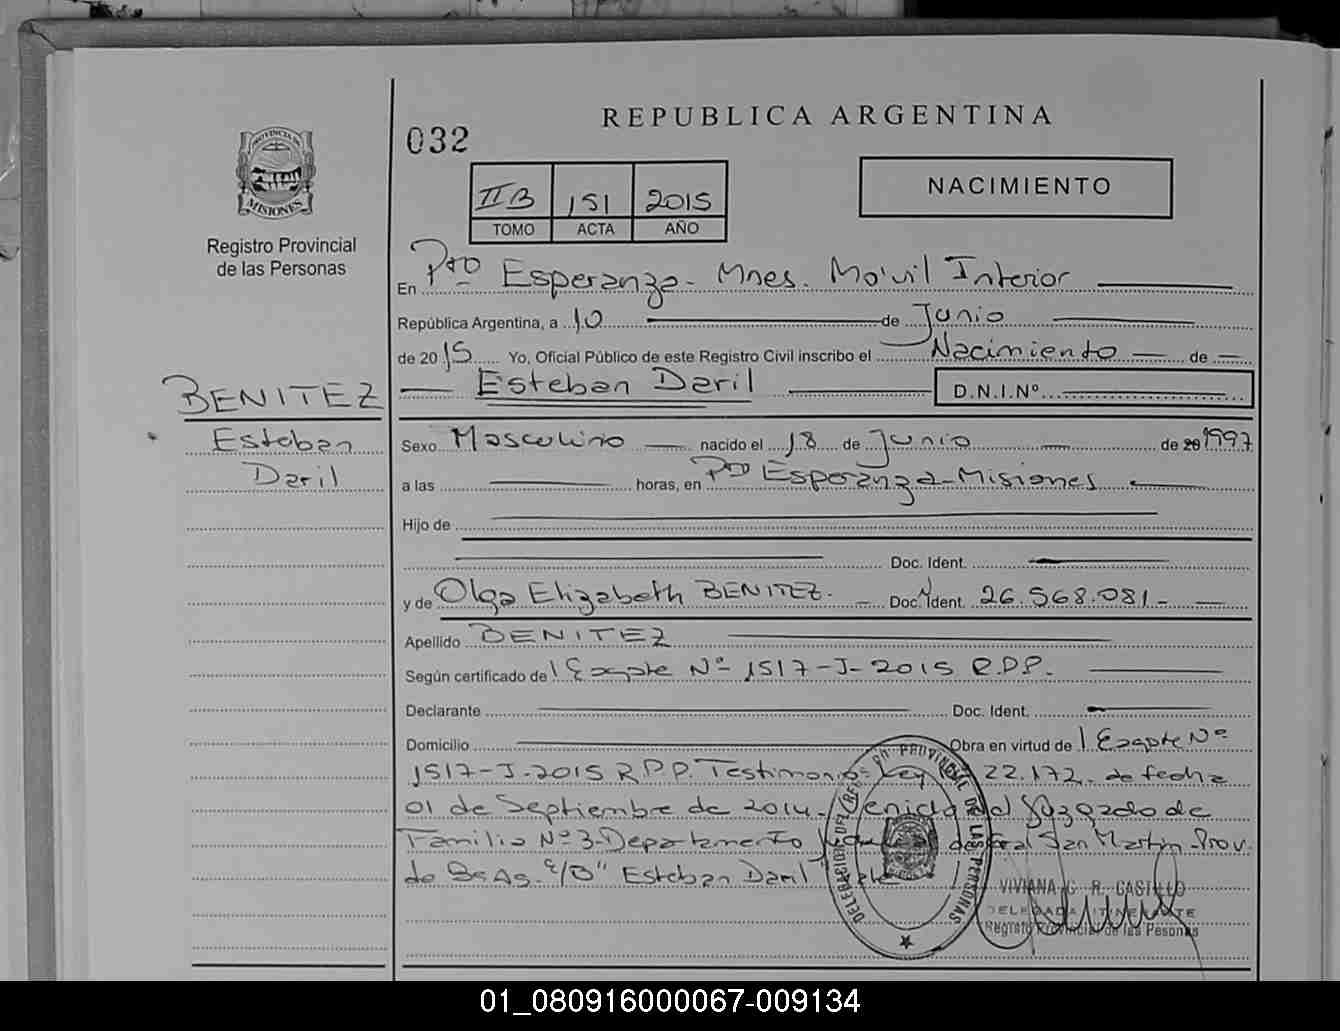 REPUBLICA ARGENTINA
032
PROVINCIA DE
MISIONES
Registro Provincial
de las Personas
IIB 151 2015
TOMO ACTA AÑO
NACIMIENTO
En Pto Esperanza - Mnes. Mo'vil Interior
República Argentina, a 10 de Junio
de 2015 Yo, Oficial Público de este Registro Civil inscribo el Nacimiento de
Esteban Daril D.N.I.Nº
BENITEZ
Esteban
Daril
Sexo Masculino nacido el 18 de Junio de 20 1997
a las horas, en Pto Esperanza - Misiones
Hijo de
Doc. Ident.
y de Olga Elizabeth BENITEZ. Doc. Ident. 26.568.081-
Apellido BENITEZ
Según certificado de Nº 1517-J-2015 R.P.P.
Declarante Doc. Ident.
Domicilio Obra en virtud de Nº
1517-J-2015 R.P.P. Testimonio Ley 22.172 de fecha
01 de Septiembre de 2014 Juzgado de
Familia Nº 3 - Departamento de Gral San Martin - Prov.
de Bs As. "Esteban Daril
DELEGACION DEL REG. PROVINCIAL DE LAS PERSONAS
VIVIANA G. R. CASTILLO
DELEGADA ITINERANTE
Registro Provincial de las Pesonas
01_080916000067-009134